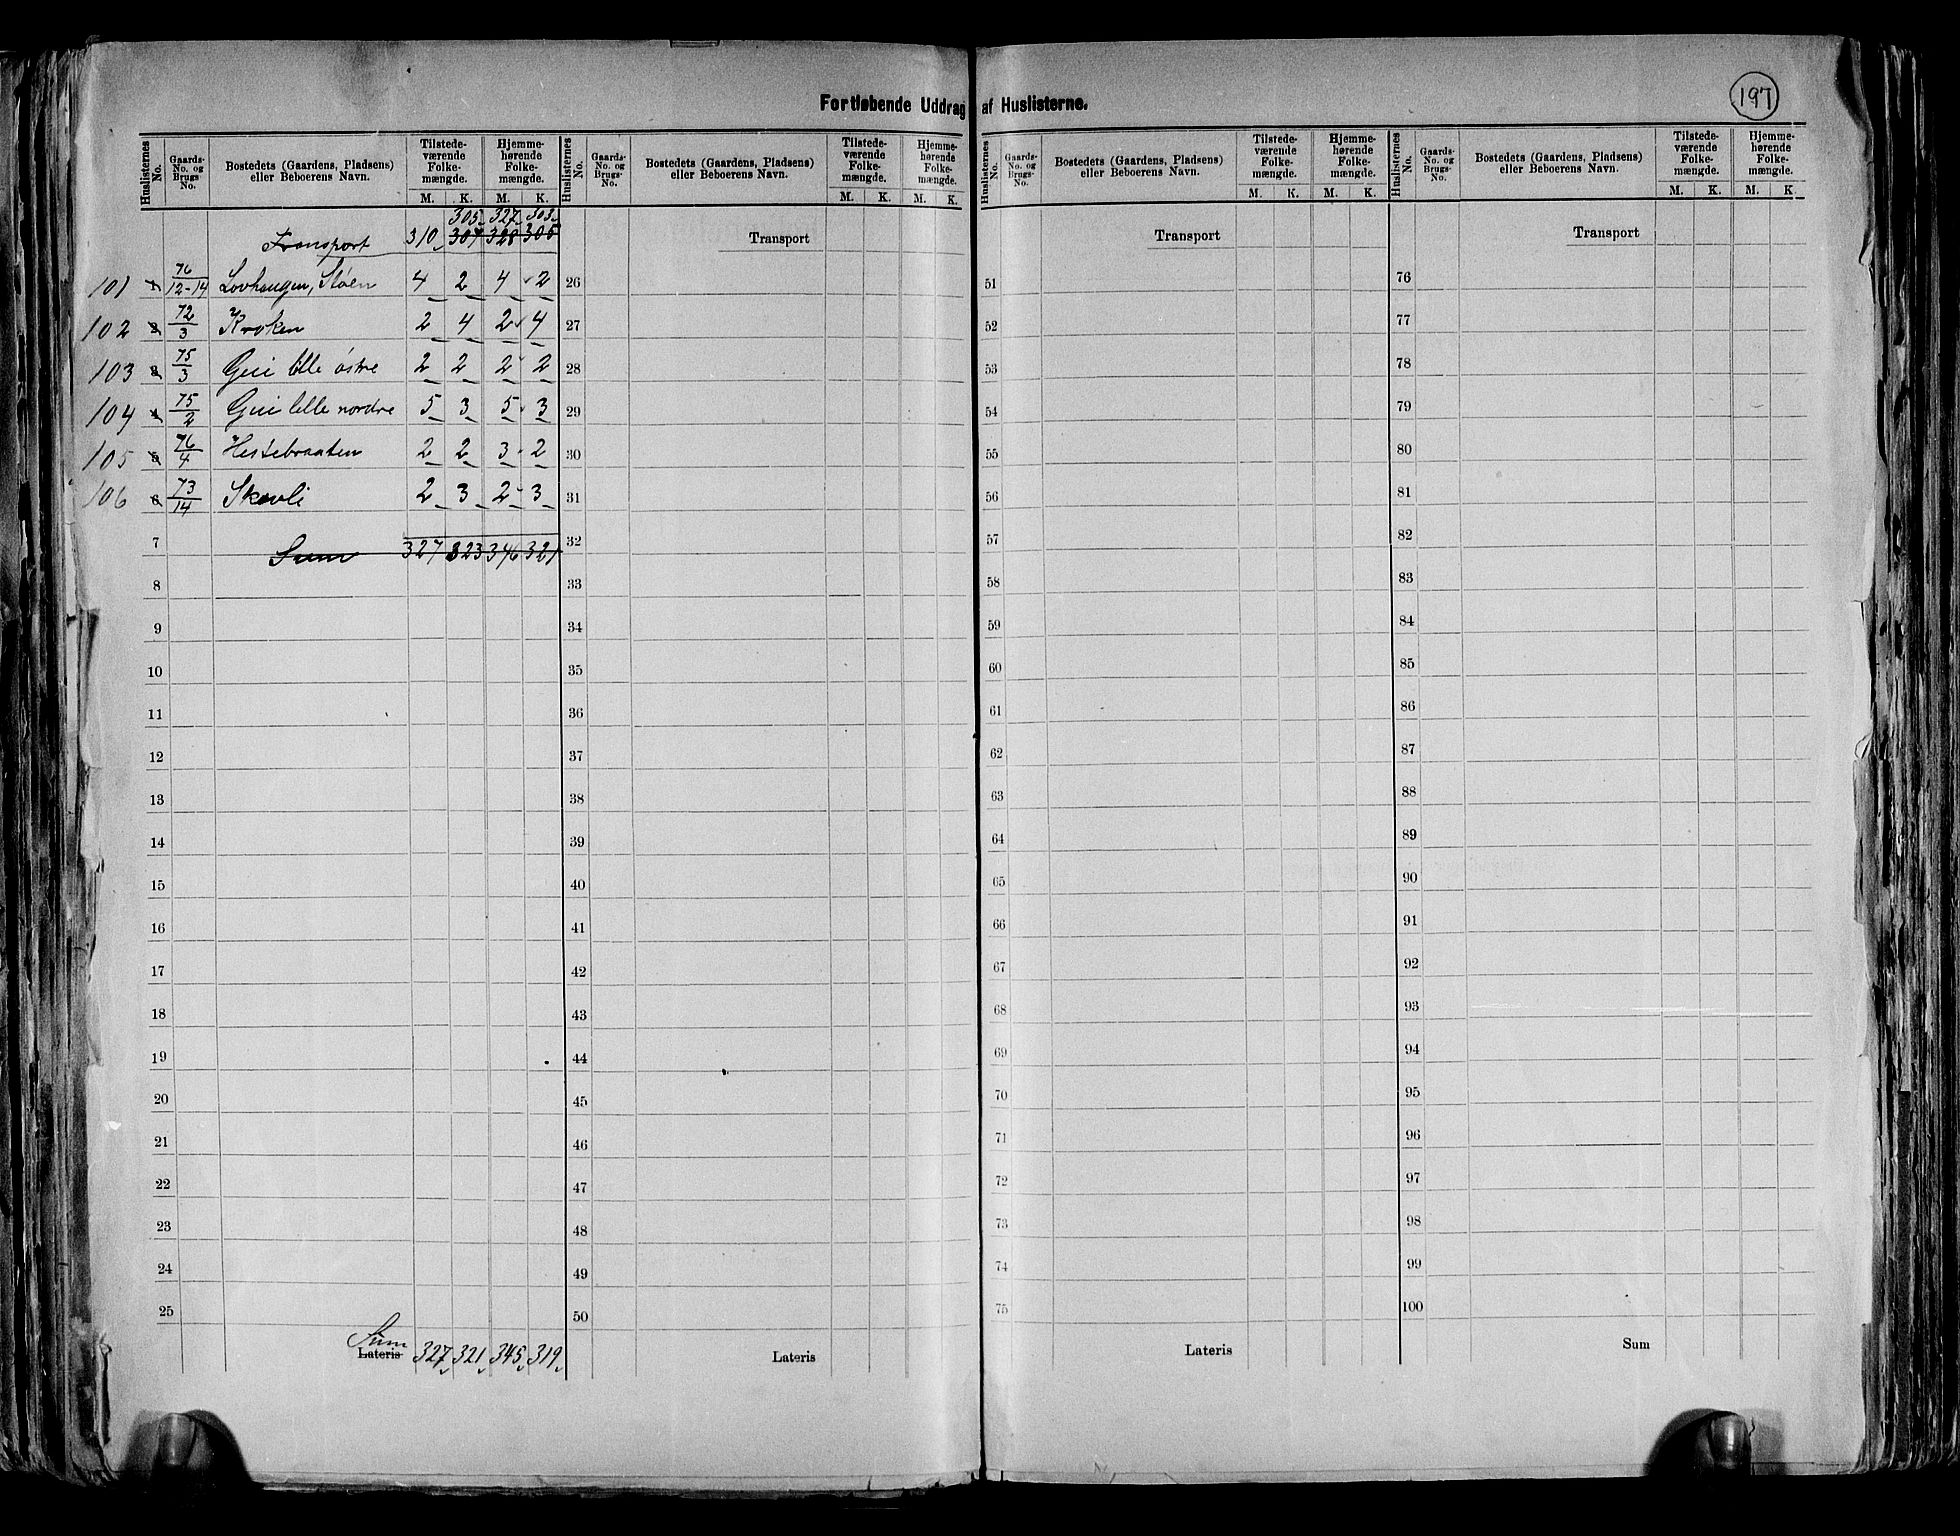 Fortløbende Uddrag af Huslisterne.
197
Huslisternes No. | Gaards-No. og Brugs-No. | Bostedets (Gaardens, Pladsens) eller Beboerens Navn. | Tilstedeværende Folkemængde. M. K. | Hjemmehørende Folkemængde. M. K.
305 327 303
Transport 310 307 328 305
101 1 76/12-14 Lovhaugen, Støen 4 2 4 2
102 2 72/3 Kroken 2 4 2 4
103 3 75/3 Gui lille østre 2 2 2 2
104 4 75/2 Gui lille nordre 5 3 5 3
105 5 76/4 Hestebraaten 2 2 3 2
106 6 73/14 Skovli 2 3 2 3
7 Sum 327 323 346 321
8
9
10
11
12
13
14
15
16
17
18
19
20
21
22
23
24
25
Sum
Lateris 327 321 345 319
Huslisternes No. | Gaards-No. og Brugs-No. | Bostedets (Gaardens, Pladsens) eller Beboerens Navn. | Tilstedeværende Folkemængde. M. K. | Hjemmehørende Folkemængde. M. K.
Transport
26
27
28
29
30
31
32
33
34
35
36
37
38
39
40
41
42
43
44
45
46
47
48
49
50
Lateris
Huslisternes No. | Gaards-No. og Brugs-No. | Bostedets (Gaardens, Pladsens) eller Beboerens Navn. | Tilstedeværende Folkemængde. M. K. | Hjemmehørende Folkemængde. M. K.
Transport
51
52
53
54
55
56
57
58
59
60
61
62
63
64
65
66
67
68
69
70
71
72
73
74
75
Lateris
Huslisternes No. | Gaards-No. og Brugs-No. | Bostedets (Gaardens, Pladsens) eller Beboerens Navn. | Tilstedeværende Folkemængde. M. K. | Hjemmehørende Folkemængde. M. K.
Transport
76
77
78
79
80
81
82
83
84
85
86
87
88
89
90
91
92
93
94
95
96
97
98
99
100
Sum